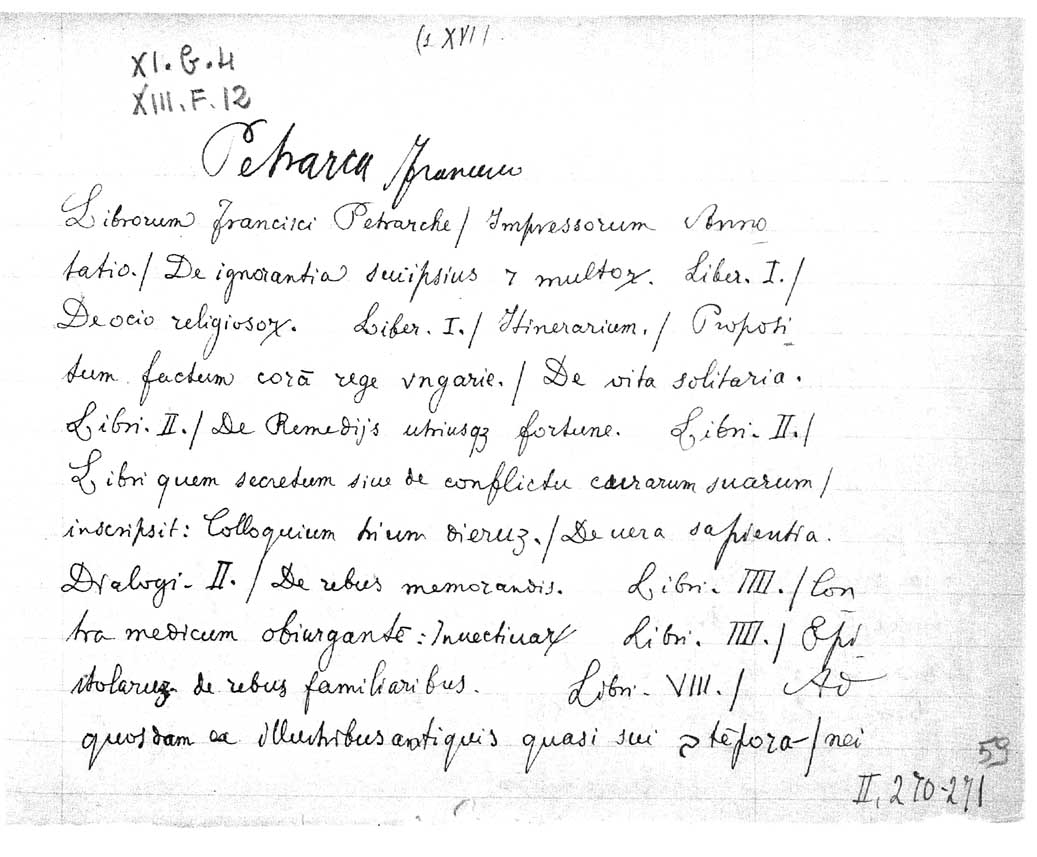 (s XVI)
XI.G.4
XIII.F.12
Petrarca Francesco
Librorum Francisci Petrarche / Impressorum Anno
tatio. / De ignorantia suiipsius ⁊ multoꝝ. Liber. I. /
De ocio religiosoꝝ. Liber. I. / Itinerarium. / Proposi
tum factum corā rege vngarie. / De vita solitaria.
Libri. II. / De Remedijs utriusqꝫ fortune. Libri. II. /
Libri quem secretum siue de conflictu curarum suarum /
inscripsit: Colloquium trium dieruꝫ. / De uera sapientia.
Dialogi. II. / De rebus memorandis. Libri. IIII. / Con
tra medicum obiurgantē: Inuectiuaꝝ Libri. IIII. / Epi
stolaruꝫ de rebus familiaribus. Libri. VIII. / Ad
quosdam ea illustribus antiquis quasi sui ↄtēpora- / nei
59
II, 270-271